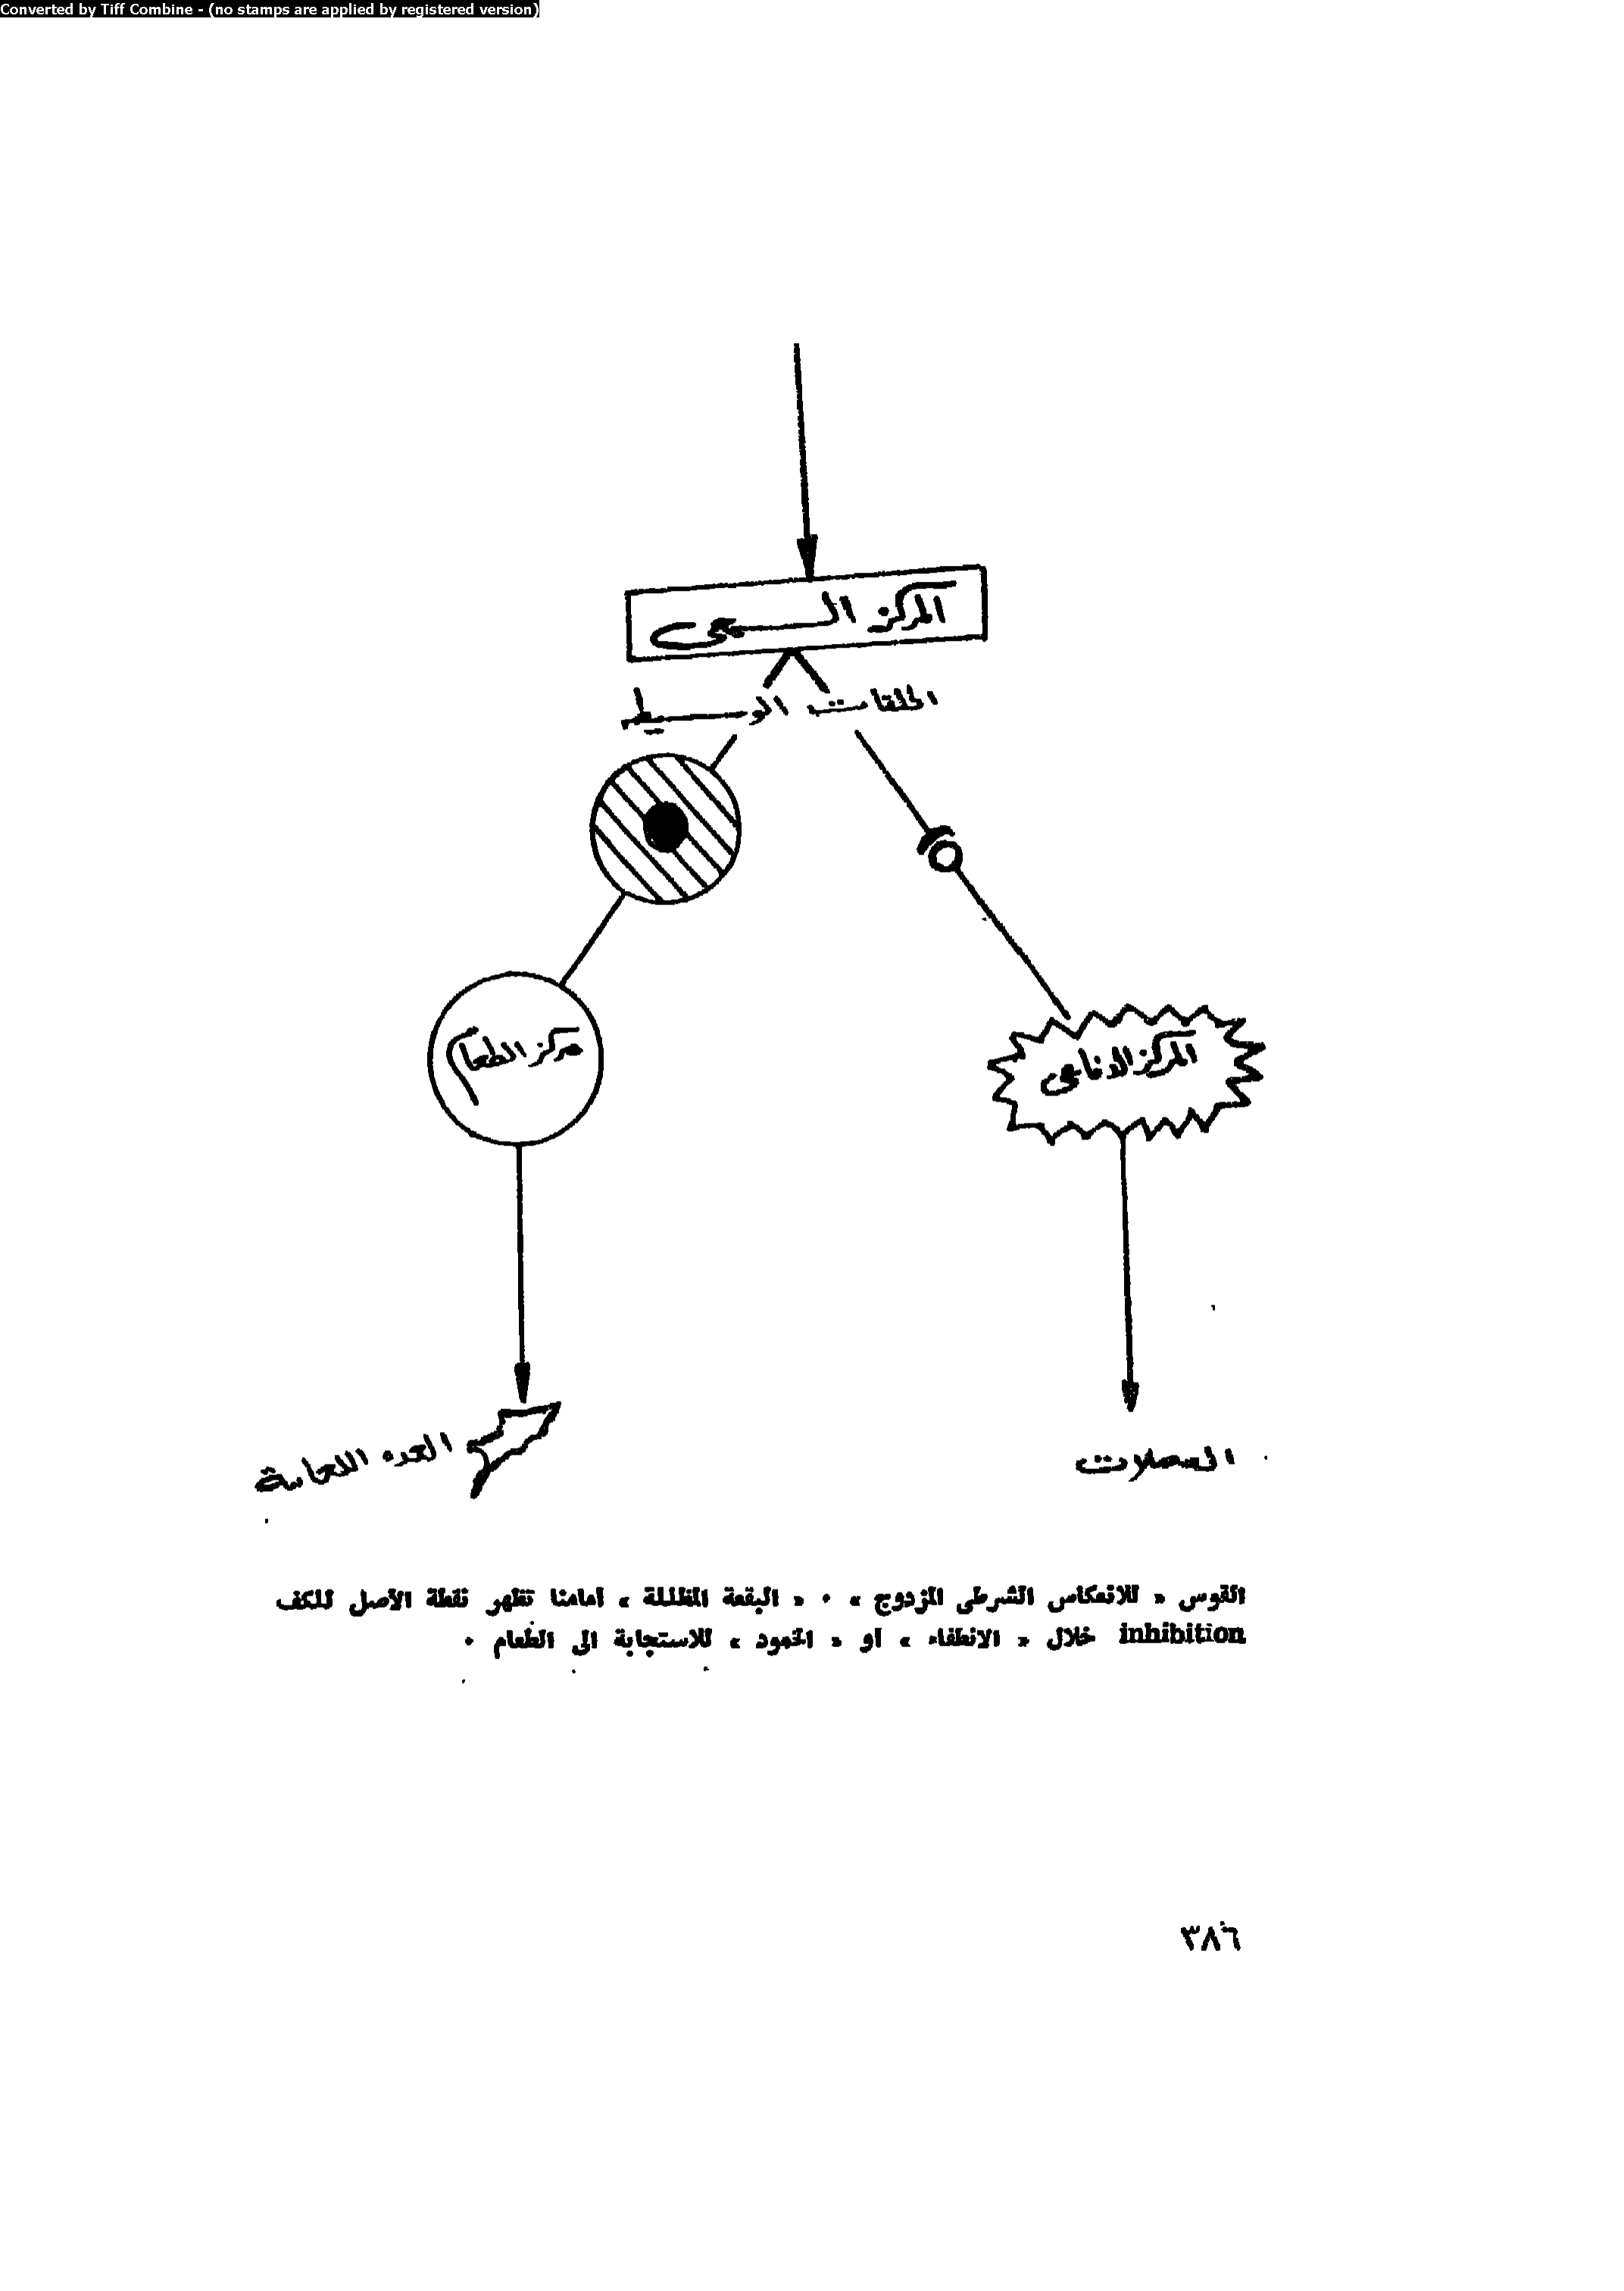 Converted by Tiff Combine - (no stamps are applied by registered version)
المركز السمعى
الحلقات الوسيط
مركز الطعام
المركز الدفاعى
الغدد اللعابية
العضلات
القوس « للانعكاس الشرطى المزدوج » ٠ « البقعة المظللة » أمامنا تظهر نقطة الأصل للكف
inhibition خلال « الانطفاء » أو « الخمود » للاستجابة الى الطعام ٠
٣٨٦